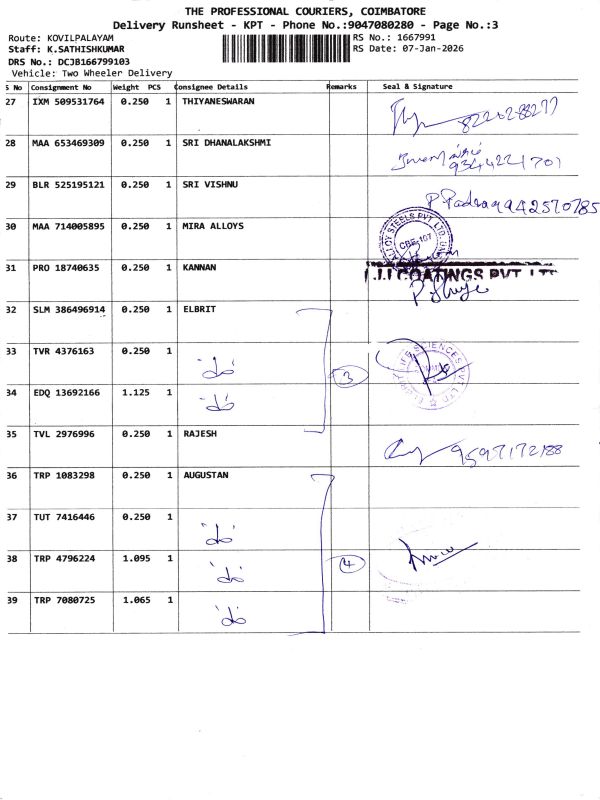 THE PROFESSIONAL COURIERS, COIMBATORE
Delivery Runsheet - KPT - Phone No.:9047080280 - Page No.:3
Route: KOVILPALAYAM
RS No.: 1667991
Staff: K.SATHISHKUMAR
RS Date: 07-Jan-2026
DRS No.: DCJB166799103
Vehicle: Two Wheeler Delivery
S No Consignment No Weight PCS Consignee Details Remarks Seal & Signature
27 IXM 509531764 0.250 1 THIYANESWARAN
28 MAA 653469309 0.250 1 SRI DHANALAKSHMI 9344221701
29 BLR 525195121 0.250 1 SRI VISHNU 9942570785
30 MAA 714005895 0.250 1 MIRA ALLOYS ALLOY STEELS PVT LTD CBE-107
31 PRO 18740635 0.250 1 KANNAN J.J COATINGS PVT LTD
32 SLM 386496914 0.250 1 ELBRIT
33 TVR 4376163 0.250 1 "do" 3 LIFE SCIENCES PVT LTD
34 EDQ 13692166 1.125 1 "do"
35 TVL 2976996 0.250 1 RAJESH 9597172188
36 TRP 1083298 0.250 1 AUGUSTAN
37 TUT 7416446 0.250 1 "do"
38 TRP 4796224 1.095 1 "do" 4
39 TRP 7080725 1.065 1 "do"